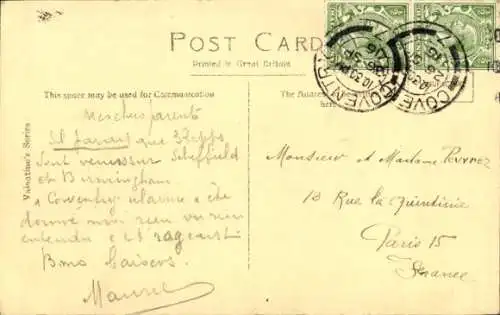 POST CARD
Printed in Great Britain
This space may be used for Communication
The Address
here
Valentine's Series
Mes chers parents
Il parait que 32
sont venus sur Sheffield
et Birmingham
a Coventry alarme a été
donné mai rien vu rien
entendu c'est rageant
Bons baisers.
Maurice
Monsieur et Madame
13 Rue la Quintinie
Paris 15
France
COVENTRY
10.30 PM
COVENTRY
10.30 PM